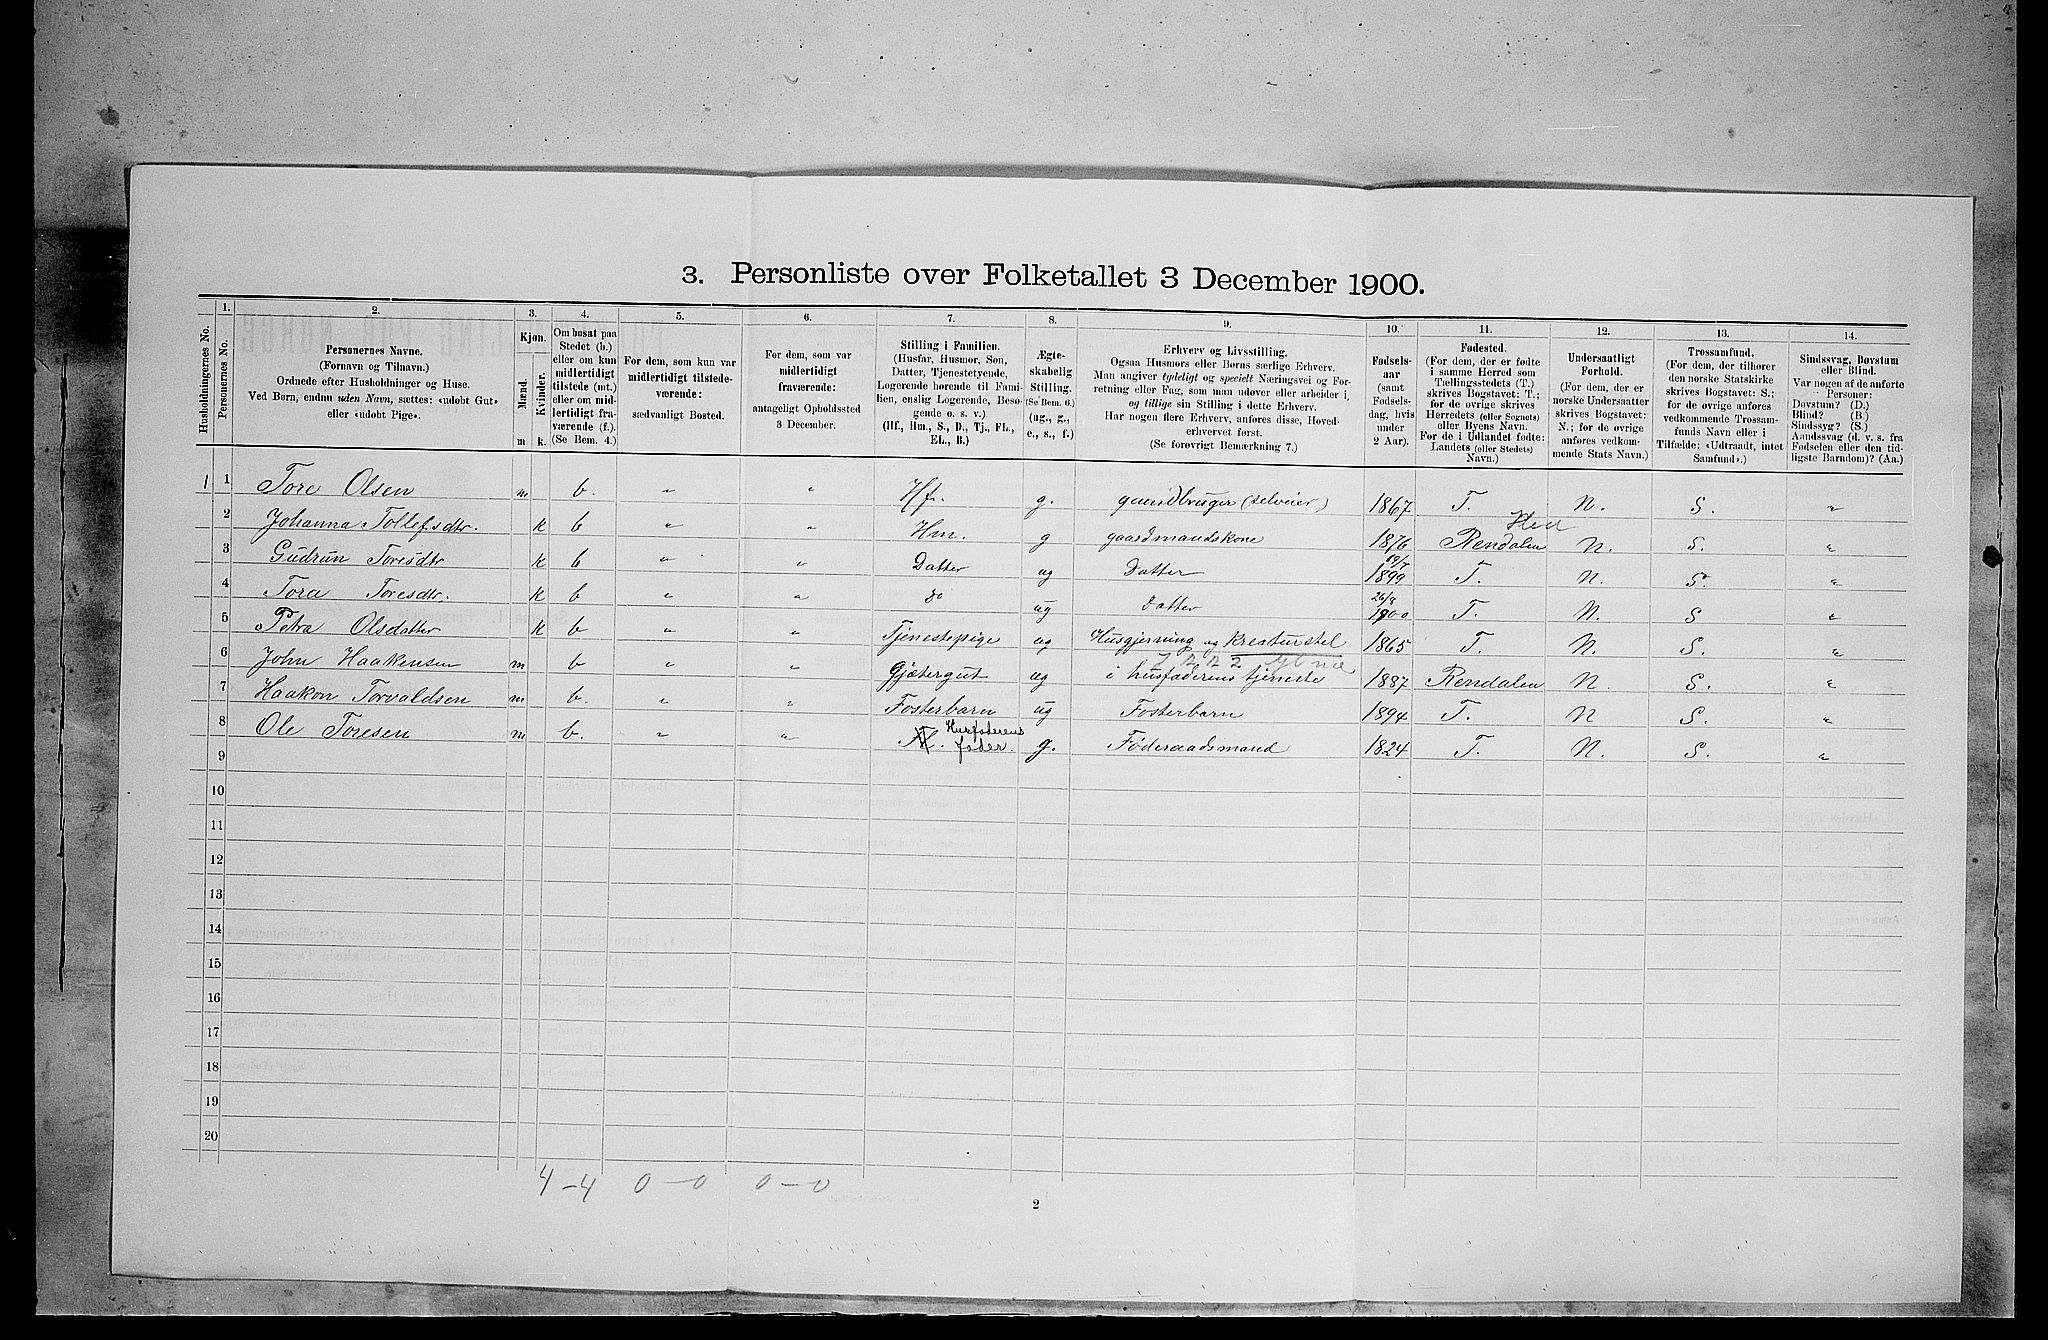 3. Personliste over Folketallet 3 December 1900.
1. 2. 3. 4. 5. 6. 7. 8. 9. 10. 11. 12. 13. 14.
Husholdningernes No.
Personernes No.
Personernes Navne.
(Fornavn og Tilnavn).
Ordnede efter Husholdninger og Huse.
Ved Børn, endnu uden Navn, sættes: «udøbt Gut»
eller «udøbt Pige».
Kjøn.
Mænd. Kvinder.
m k.
Om bosat paa
Stedet (b.)
eller om kun
midlertidigt
tilstede (mt.)
eller om mid-
lertidigt fra-
værende (f.).
(Se Bem. 4.)
For dem, som kun var
midlertidigt tilstede-
værende:
sædvanligt Bosted.
For dem, som var
midlertidigt
fraværende:
antageligt Opholdssted
3 December.
Stilling i Familien.
(Husfar, Husmor, Søn,
Datter, Tjenestetyende,
Logerende hørende til Fami-
lien, enslig Logerende, Besø-
gende o. s. v.)
(Hf., Hm., S., D., Tj., FL.,
EL., B.)
Ægte-
skabelig
Stilling.
(Se Bem. 6.)
(ug., g.,
e., s., f.)
Erhverv og Livsstilling.
Ogsaa Husmors eller Børns særlige Erhverv.
Man angiver tydeligt og specielt Næringsvei og For-
retning eller Fag, som man udøver eller arbeider i,
og tillige sin Stilling i dette Erhverv.
Har nogen flere Erhverv, anføres disse, Hoved-
erhvervet først.
(Se forøvrigt Bemærkning 7.)
Fødsels-
aar
(samt
Fødsels-
dag, hvis
under
2 Aar).
Fødested.
(For dem, der er fødte
i samme Herred som
Tællingsstedets (T.)
skrives Bogstavet: T.;
for de øvrige skrives
Herredets (eller Sognets)
eller Byens Navn.
For de i Udlandet fødte:
Landets (eller Stedets)
Navn.)
Undersaatligt
Forhold.
(For dem, der er
norske Undersaatter
skrives Bogstavet:
N.; for de øvrige
anføres vedkom-
mende Stats Navn.)
Trossamfund.
(For dem, der tilhører
den norske Statskirke
skrives Bogstavet: S.;
for de øvrige anføres
vedkommende Trossam-
funds Navn eller i
Tilfælde: «Udtraadt, intet
Samfund».)
Sindssvag, Døvstum
eller Blind.
Var nogen af de anførte
Personer:
Døvstum? (D.)
Blind? (B.)
Sindssyg? (S.)
Aandssvag (d. v. s. fra
Fødselen eller den tid-
ligste Barndom)? (Aa.)
1 1 Tore Olsen m b. " " Hf. g. gaardbruger (selveier) 1867 T. N. S. "
2 Johanna Tollefsdtr. k b " " Hm. g gaardmandskone 1876 Rendalen N. S. "
3 Gudrun Toresdtr k b " " Datter ug Datter 1899 T. N. S. "
4 Tora Toresdtr. k b " " do ug Datter 26/9 1900 T. N. S "
5 Petra Olsdatter k b " " Tjenestepige ug Husgjerning og kreaturstel 1865 T. N. S. "
6 John Haakensen m b " " Gjætergut ug i husfaderens tjeneste 1887 Rendalen N. S. "
7 Haakon Torvaldsen m b. " " Fosterbarn ug Fosterbarn 1894 T. N S. "
8 Ole Toresen m b. " " Husfaderens fader. g. Føderaadsmand 1824 T. N. S. "
9
10
11
12
13
14
15
16
17
18
19
20
4-4 0-0 0-0
2